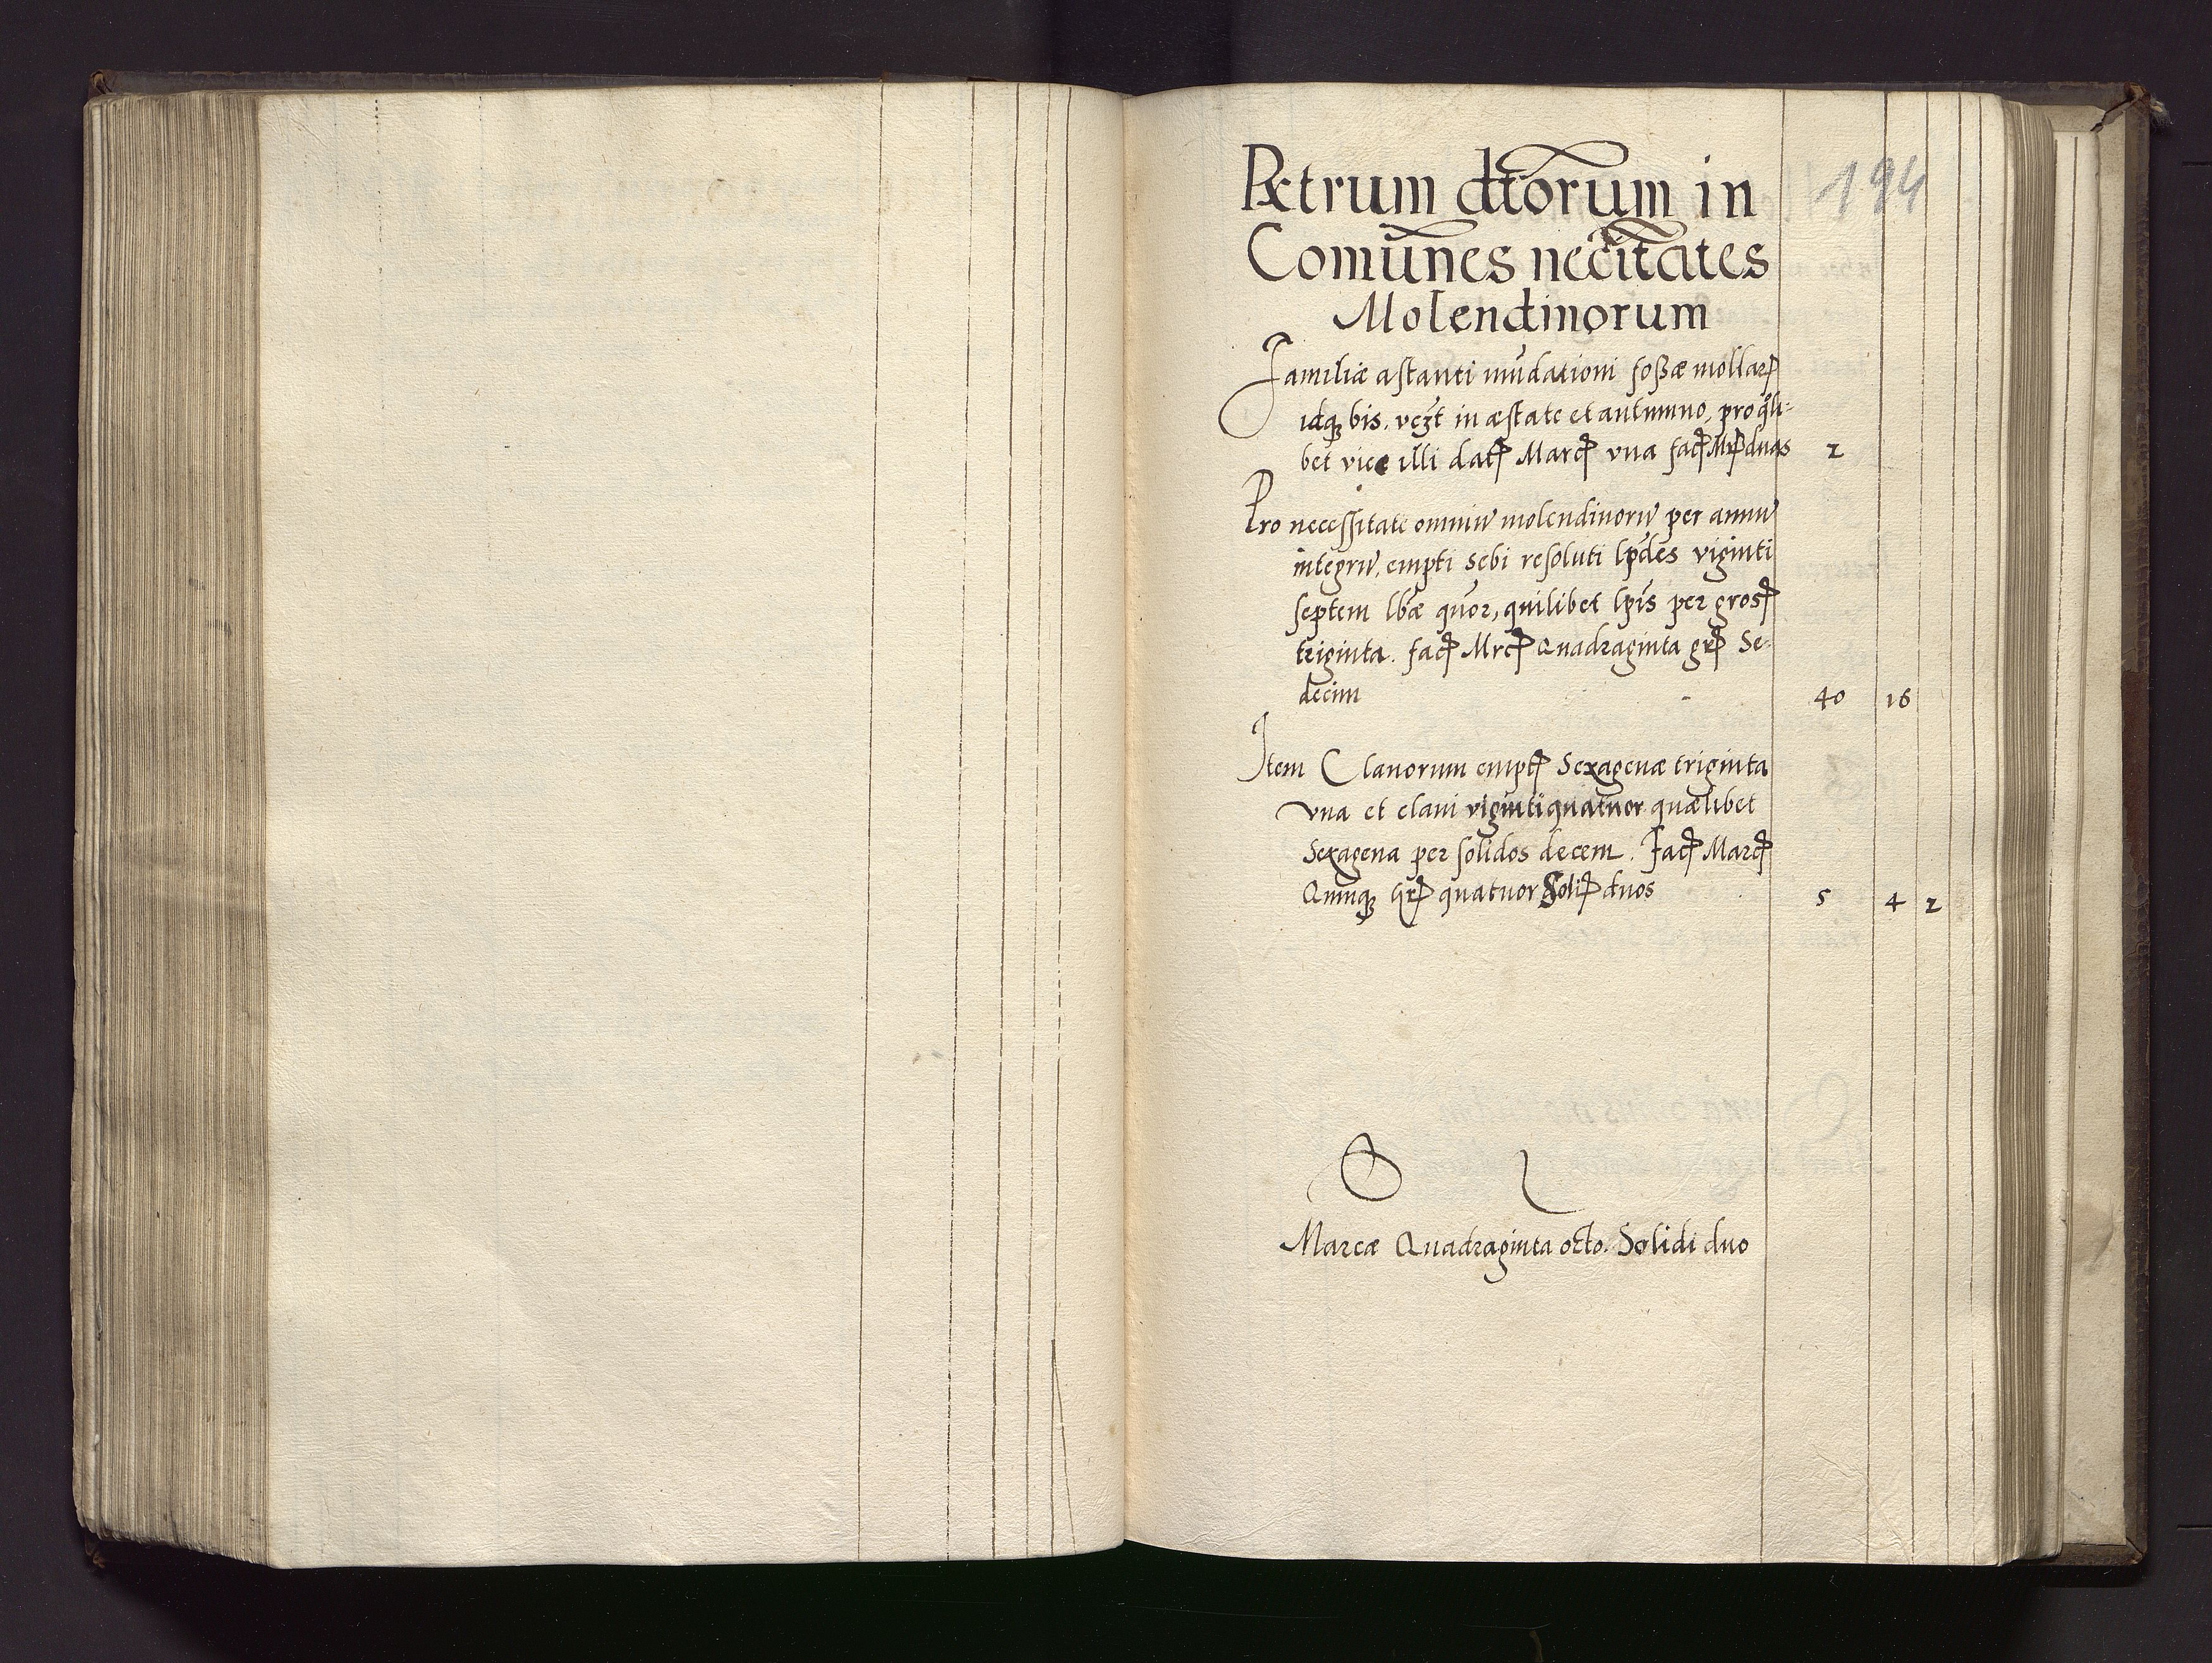 Pxtrum dtorum in
194
Comunes necitates
Molendinorum
Familiæ astanti mūdationi foßæ mollar
idq bis. vezt in æstate et autumno, pro qli-
bet vice illi dat Marc vna fac Mr duas 2
Pro necessitate omniū molendinorū per annū
integrū, empti sebi resoluti lpdes viginti
septem lbæ quor, quilibet lpis per gros
triginta. fac Mrc Quadraginta gr Se-
decim - 40 16
Item Clauorum empt Sexagenæ triginta
vna et claui viginti quatuor quælibet
Sexagena per solidos decem. Fac Marc
Quinq Gr quatuor Soli duos 5 4 2
Marcæ Quadraginta octo. Solidi duo